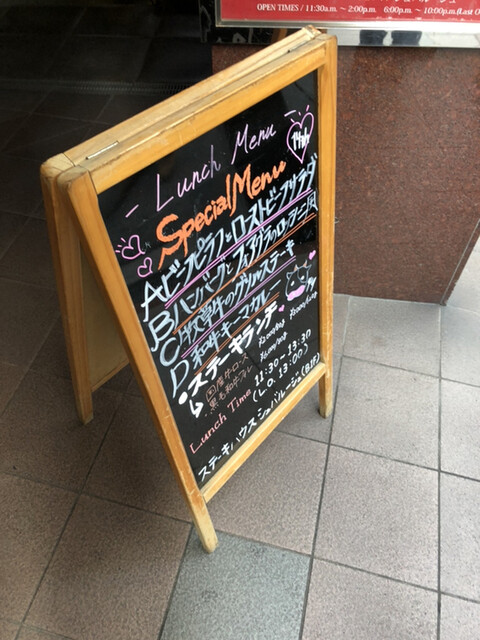 OPEN TIMES / 11:30a.m. ～ 2:00p.m. 6:00p.m. ～ 10:00p.m.(Last O
- Lunch Menu -
14th
Special Menu
Aビーフピラフとローストビーフサラダ
Bハンバーグとフォアグラのロッシーニ風
C牧草牛のグリルステーキ
D和牛キーマカレー
・ステーキランチ
国産牛ロース
黒毛和牛フィレ
Lunch Time 11:30-13:30
(L.o. 13:00)
ステーキハウス シュバルージュ(B1F)